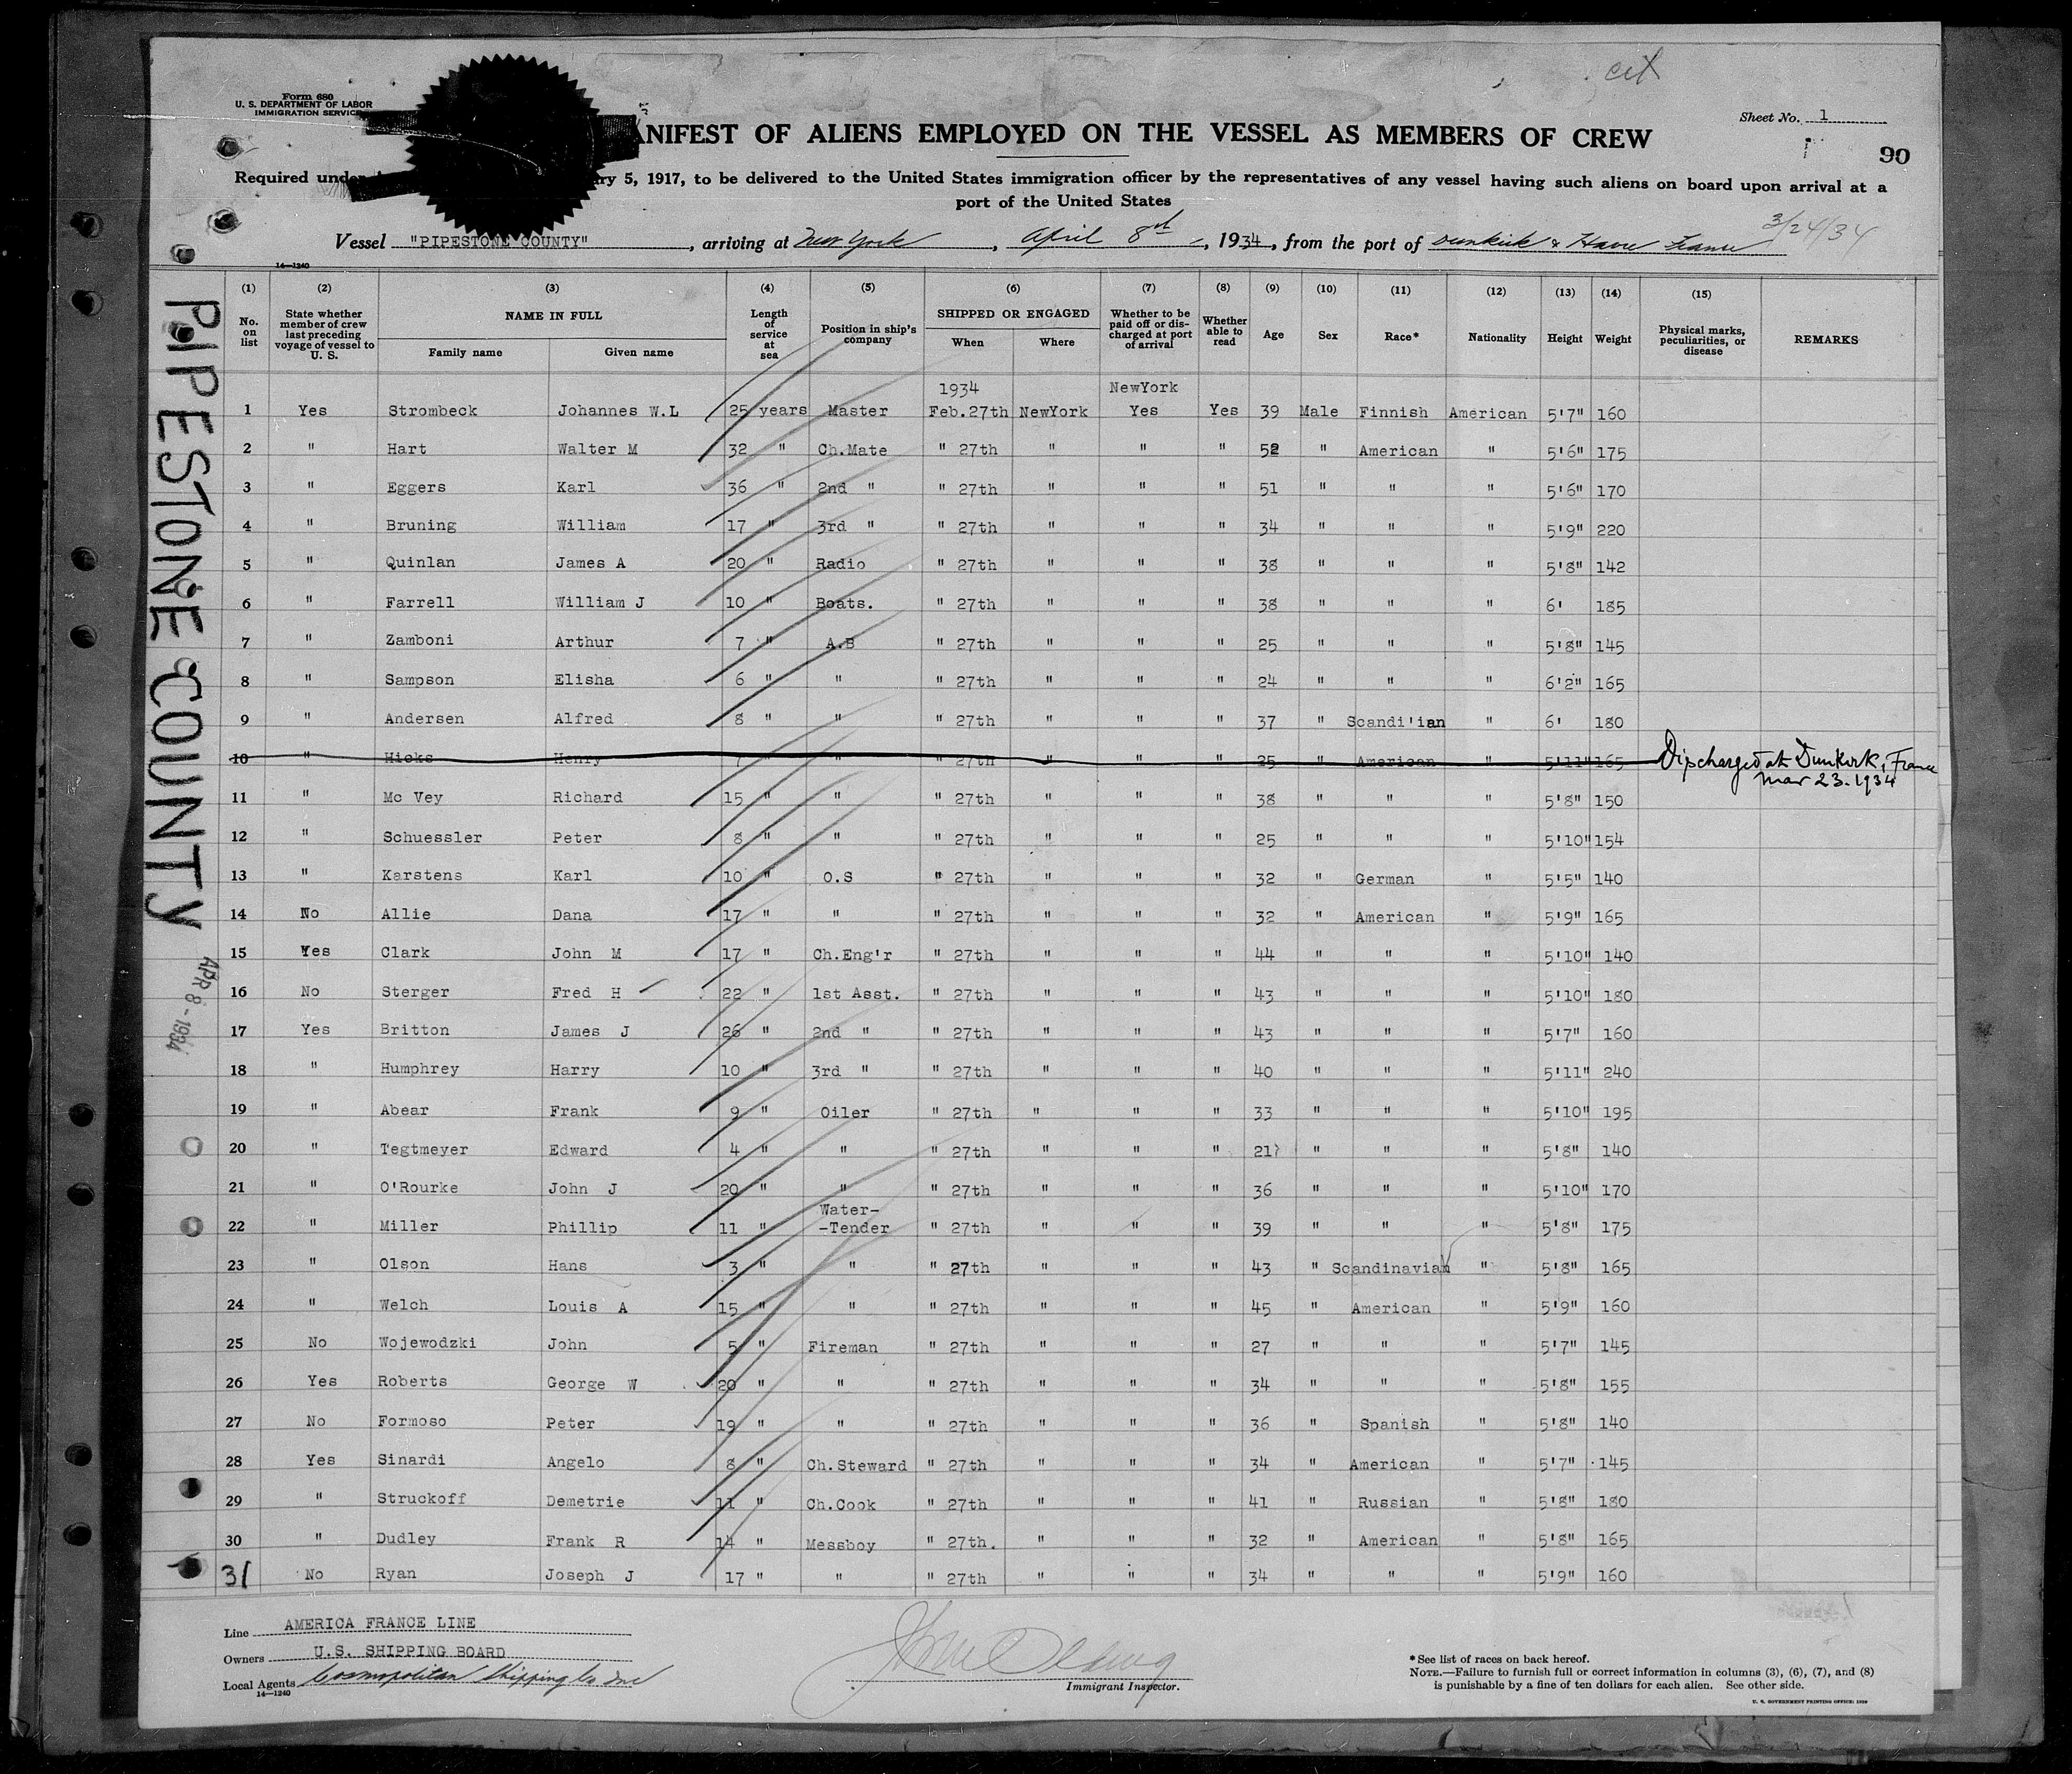 cit
Form 680
U. S. DEPARTMENT OF LABOR
IMMIGRATION SERVICE
Sheet No. 1
90
ANIFEST OF ALIENS EMPLOYED ON THE VESSEL AS MEMBERS OF CREW
Required under ry 5, 1917, to be delivered to the United States immigration officer by the representatives of any vessel having such aliens on board upon arrival at a
port of the United States
3/24/34
Vessel "PIPESTONE COUNTY", arriving at New York, April 8th, 1934, from the port of Dunkirk & Havre France
14—1240
PIPESTONE COUNTY
APR 8 - 1934
(1) (2) (3) (4) (5) (6) (7) (8) (9) (10) (11) (12) (13) (14) (15)
No. on list State whether member of crew last preceding voyage of vessel to U. S. NAME IN FULL Family name Given name Length of service at sea Position in ship's company SHIPPED OR ENGAGED When Where Whether to be paid off or discharged at port of arrival Whether able to read Age Sex Race* Nationality Height Weight Physical marks, peculiarities, or disease REMARKS
1934 NewYork
1 Yes Strombeck Johannes W.L 25 years Master Feb.27th NewYork Yes Yes 39 Male Finnish American 5'7" 160
2 " Hart Walter M 32 " Ch.Mate " 27th " " " 52 " American " 5'6" 175
3 " Eggers Karl 36 " 2nd " " 27th " " " 51 " " " 5'6" 170
4 " Bruning William 17 " 3rd " " 27th " " " 34 " " " 5'9" 220
5 " Quinlan James A 20 " Radio " 27th " " " 38 " " " 5'8" 142
6 " Farrell William J 10 " Boats. " 27th " " " 38 " " " 6' 185
7 " Zamboni Arthur 7 " A.B " 27th " " " 25 " " " 5'8" 145
8 " Sampson Elisha 6 " " " 27th " " " 24 " " " 6'2" 165
9 " Andersen Alfred 8 " " " 27th " " " 37 " Scandi'ian " 6' 180
10 " Hicks Henry 7 " " " 27th " " " 25 " American " 5'11" 165 Discharged at Dunkirk, France
Mar 23. 1934
11 " Mc Vey Richard 15 " " " 27th " " " 38 " " " 5'8" 150
12 " Schuessler Peter 8 " " " 27th " " " 25 " " " 5'10" 154
13 " Karstens Karl 10 " O.S " 27th " " " 32 " German " 5'5" 140
14 No Allie Dana 17 " " " 27th " " " 32 " American " 5'9" 165
15 Yes Clark John M 17 " Ch.Eng'r " 27th " " " 44 " " " 5'10" 140
16 No Sterger Fred H 22 " 1st Asst. " 27th " " " 43 " " " 5'10" 180
17 Yes Britton James J 26 " 2nd " " 27th " " " 43 " " " 5'7" 160
18 " Humphrey Harry 10 " 3rd " " 27th " " " 40 " " " 5'11" 240
19 " Abear Frank 9 " Oiler " 27th " " " 33 " " " 5'10" 195
20 " Tegtmeyer Edward 4 " " " 27th " " " 21 " " " 5'8" 140
21 " O'Rourke John J 20 " " " 27th " " " 36 " " " 5'10" 170
22 " Miller Phillip 11 " Water--Tender " 27th " " " 39 " " " 5'8" 175
23 " Olson Hans 3 " " " 27th " " " 43 " Scandinavian " 5'8" 165
24 " Welch Louis A 15 " " " 27th " " " 45 " American " 5'9" 160
25 No Wojewodzki John 5 " Fireman " 27th " " " 27 " " " 5'7" 145
26 Yes Roberts George W 20 " " " 27th " " " 34 " " " 5'8" 155
27 No Formoso Peter 19 " " " 27th " " " 36 " Spanish " 5'8" 140
28 Yes Sinardi Angelo 8 " Ch.Steward " 27th " " " 34 " American " 5'7" 145
29 " Struckoff Demetrie 11 " Ch.Cook " 27th " " " 41 " Russian " 5'8" 180
30 " Dudley Frank R 14 " Messboy " 27th. " " " 32 " American " 5'8" 165
31 No Ryan Joseph J 17 " " " 27th " " " 34 " " " 5'9" 160
Line AMERICA FRANCE LINE
Owners U.S. SHIPPING BOARD
Local Agents Cosmopolitan Shipping Co Inc
14—1240
Immigrant Inspector.
*See list of races on back hereof.
NOTE.—Failure to furnish full or correct information in columns (3), (6), (7), and (8)
is punishable by a fine of ten dollars for each alien. See other side.
U. S. GOVERNMENT PRINTING OFFICE: 1929